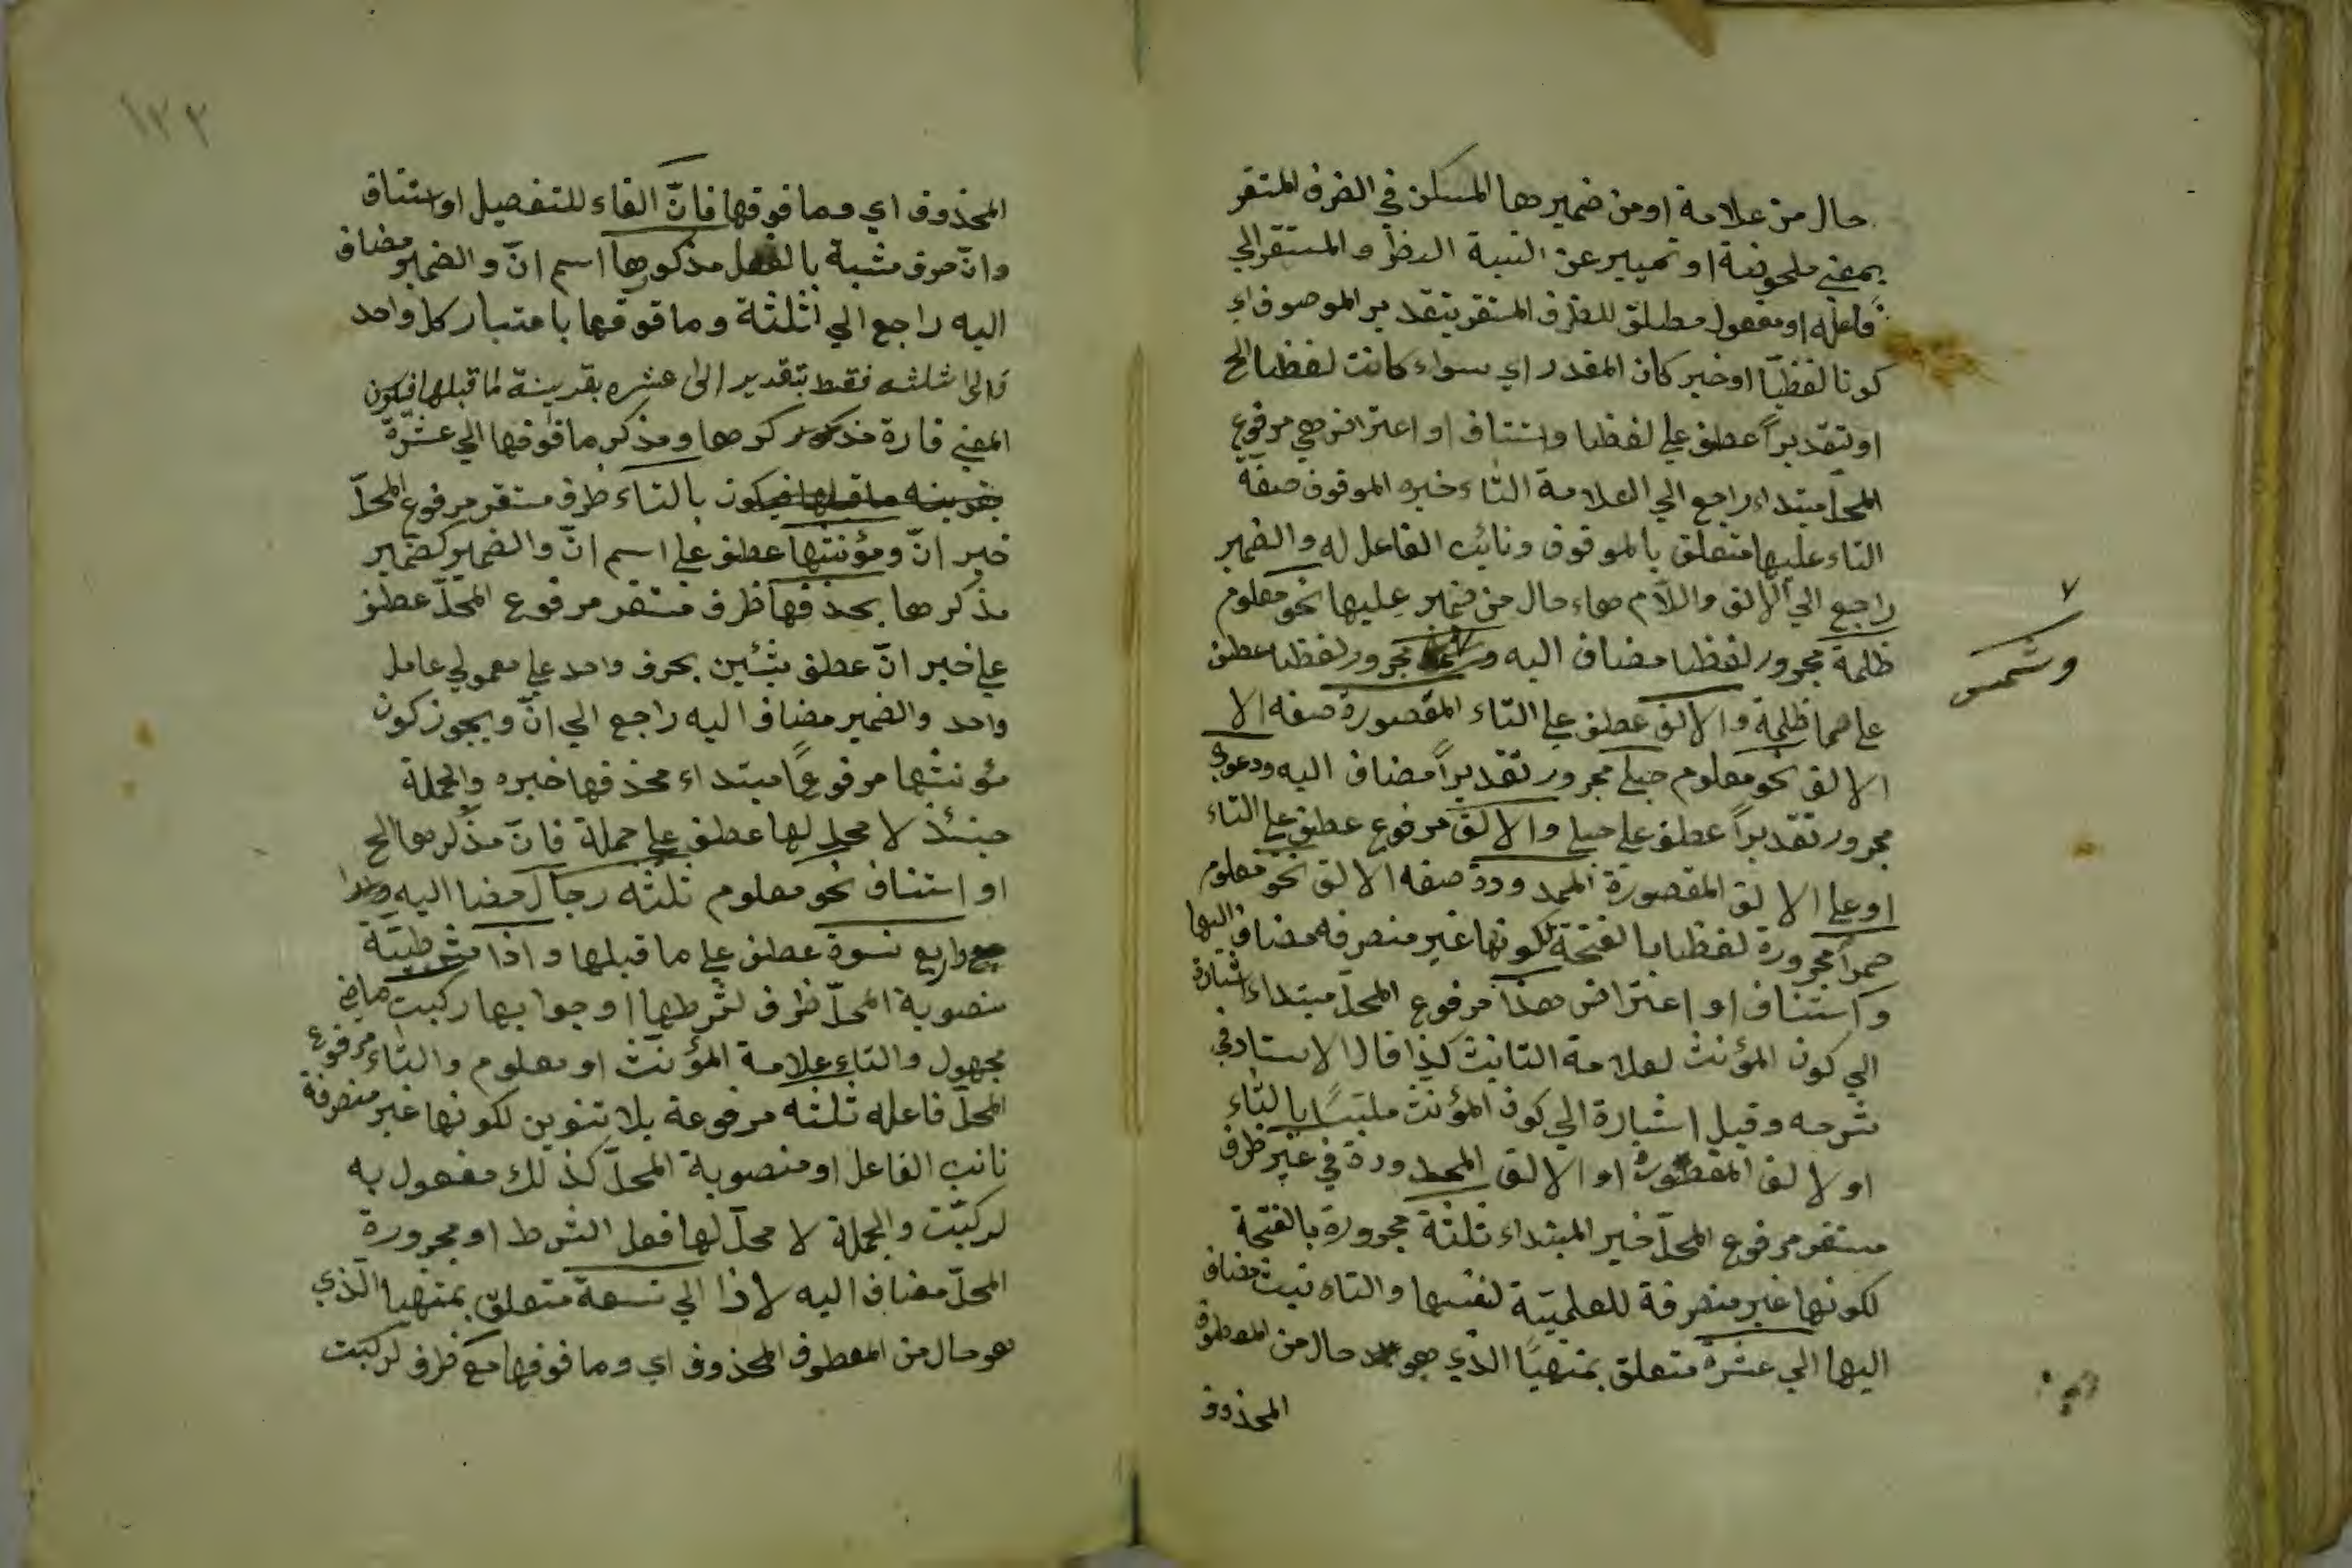 حال من علامة او من ضميرها المستكن في الضرف المستقر
بمعني ملحوظة او تمييز عن النسبة الظرف والمستقر الي
فاعله او مفعول مطلق للظرف المستقر بتقدير الموصوف اي
كونا لفظيّا او خبر كان المقدر اي سواء كانت لفظيا الخ
او تقديراً عطف علي لفظيا واستناف او اعتراض هي مرفوع
المحلّ مبتداء راجع الي العلامة التاء خبره الموقوف صفة
التاء عليها متعلق بالموقوف ونائب الفاعل له والضمير
راجع الي الالف واللام هاء حال من ضمير عليها نحو معلوم
ظلمة مجرور لفظيا مضاف اليه و مجرور لفظيا عطف
٧
وشمس
علي ظلمة والالف عطف علي التاء المقصورة صفه الا
الالف نحو معلوم حبلي مجرور تقديراً مضاف اليه ودعوي
مجرور تقديراً عطف علي حبلي والالف مرفوع عطف علي التاء
او علي الالف المقصورة الممدودة صفه الالف نحو معلوم
حمراء مجرورة لفظيا بالفتحة لكونها غير منصرفه مضاف اليها
واستناف او اعتراض هذا مرفوع المحلّ مبتداء اشارة
الي كون المؤنث لعلامة التانيث كذا قال الاستاد في
شرحه وقيل اشارة الي كون المؤنث ملتبسًا بالتاء
او لالف المقصورة او الالف الممدودة في غير ظرف
مستقر مرفوع المحلّ خبر المبتداء ثلثة مجرورة بالفتحة
لكونها غير منصرفة للعلميّة لنفسها والتاء نيث مضاف
اليها الي عشرة متعلق بمنتهيًا الذي هو حال من المعطوف
المحذوف
١٣٣
المحذوف اي وما فوقها فانّ الفاء للتفصيل او استناف
وانّ حرف مشبة بالفعل مذكورها اسم انّ والضمير مضاف
اليه راجع الي ثلثة وما فوقها باعتبار كل واحد
والى ثلثه فقط بتقدير الى عشره بقرينة لما قبلها فيكون
المعني فارة مذكرها ومذكر ما فوقها الي عشرة
بقرينه ما قبلها فيكون بالتاء ظرف مستقر مرفوع المحلّ
خبر انّ ومؤنثها عطف علي اسم انّ والضمير كضمير
مذكرها بحذفها ظرف مستقر مرفوع المحلّ عطف
علي خبر انّ عطف شيئين بحرف واحد علي معمولي عامل
واحد والضمير مضاف اليه راجع الي انّ ويجوز كون
مؤنثها مرفوعًا مبتداء محذفها خبره والجملة
حينئذ لا محل لها عطف علي جملة فانّ مذكرها الخ
او استناف نحو معلوم ثلثه رجال مضا اليه
واربع نسوة عطف علي ما قبلها واذا شرطيّة
منصوبة المحلّ ظرف لشرطها او جوابها ركبت ماض
مجهول والتاء علامة المؤنث او معلوم والتاء مرفوع
المحلّ فاعله ثلثه مرفوعة بلا تنوين لكونها غير منصرفة
نائب الفاعل او منصوبة المحلّ كذلك مفعول به
لركبّت والجملة لا محلّ لها فعل الشرط او مجرورة
المحلّ مضاف اليه لاذا الي تسعة متعلق بمنتهيا الّذي
هو حال من المعطوف المحذوف اي وما فوقها مع ظرف لركبّت